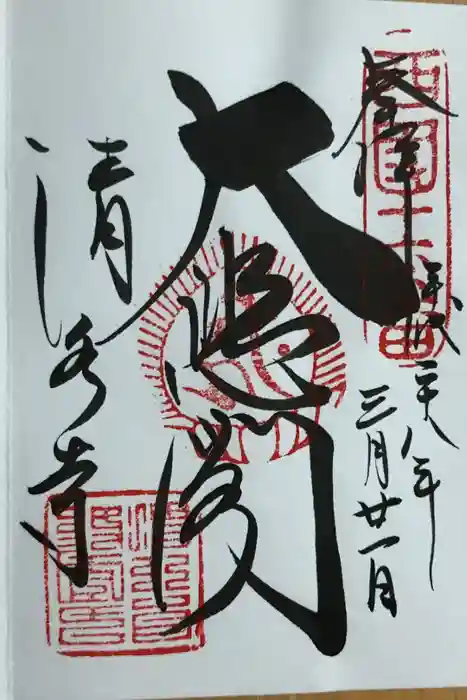 奉拝
平成二十八年
三月廿一日
大悲閣
清水寺